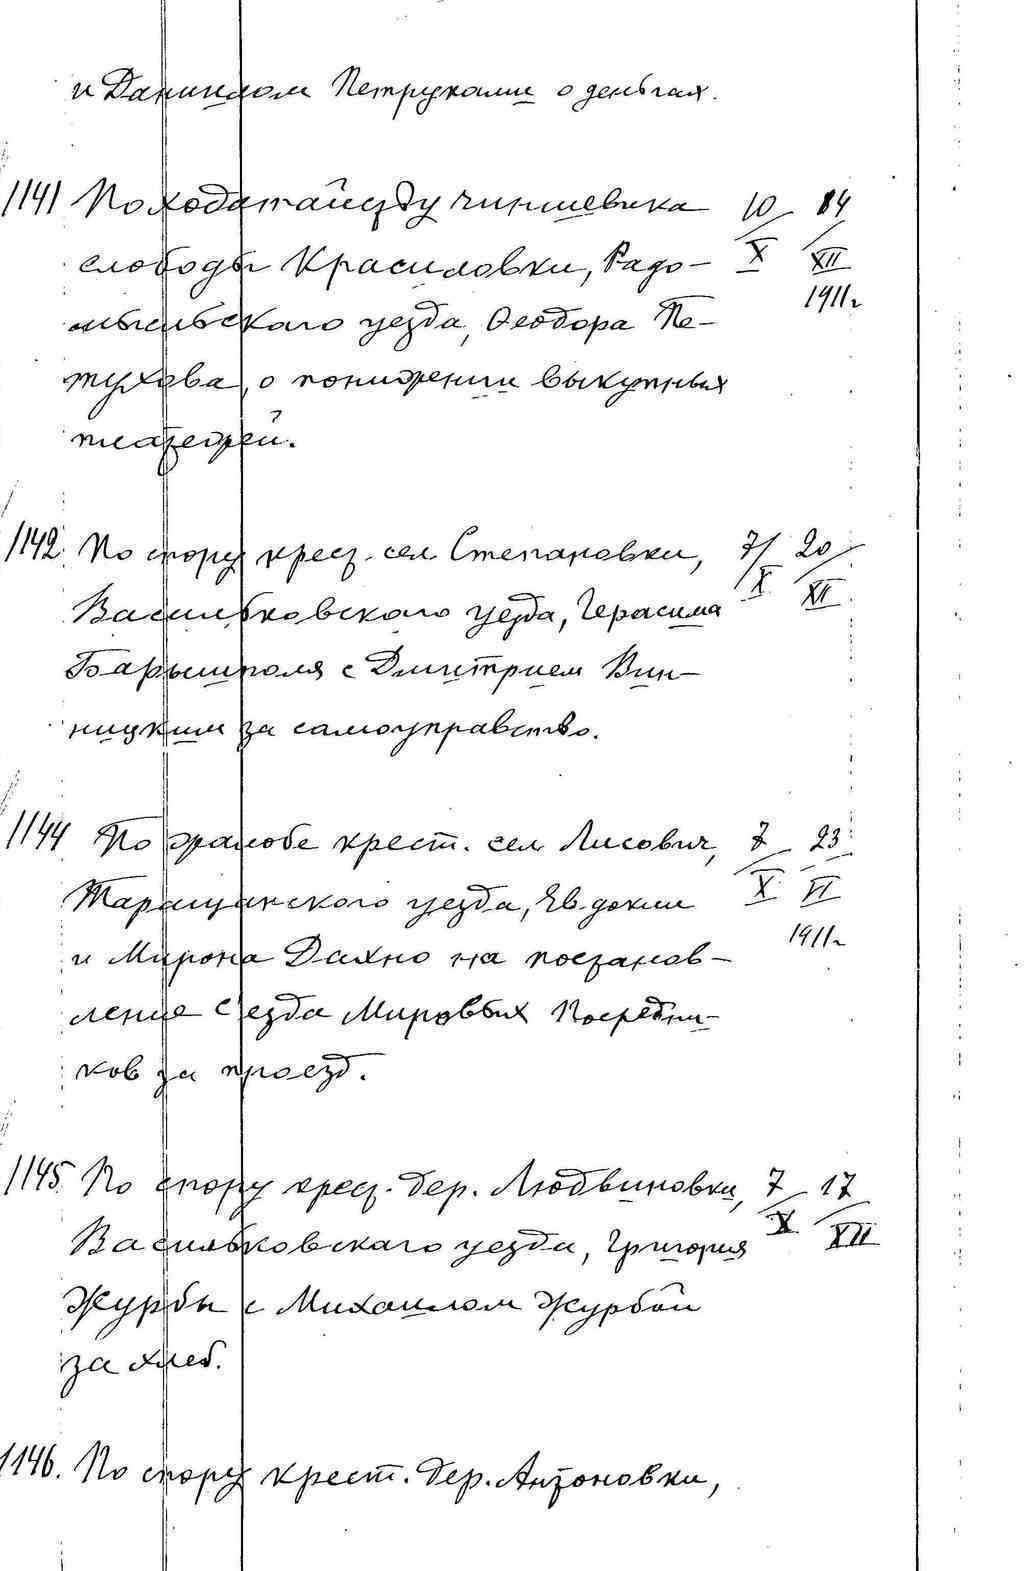 и Данилом Петруками о деньгах.
1141 По ходатайству чиншевика 10 84
слободы Красиловки, Радо- X XII
мысльского уезда, Феодора Пе- 1911г
тухова, о понижении выкупных
платежей.
1142. По спору крест. сел. Степановки, 7 20
Васильковского уезда, Герасима X XII
Барышполя с Дмитрием Вин-
ницким за самоуправство.
1144 По жалобе крест. сел. Лисович, 7 23
Таращанского уезда, Евдокии X VI
и Мирона Дахно на постанов- 1911г
ление Съезда Мировых Посредни-
ков за проезд.
1145. По спору крест. дер. Людвиновки, 7 17
Васильковского уезда, Григория X XII
Журбы с Михаилом Журбой
за хлеб.
1146. По спору крест. дер. Антоновки,